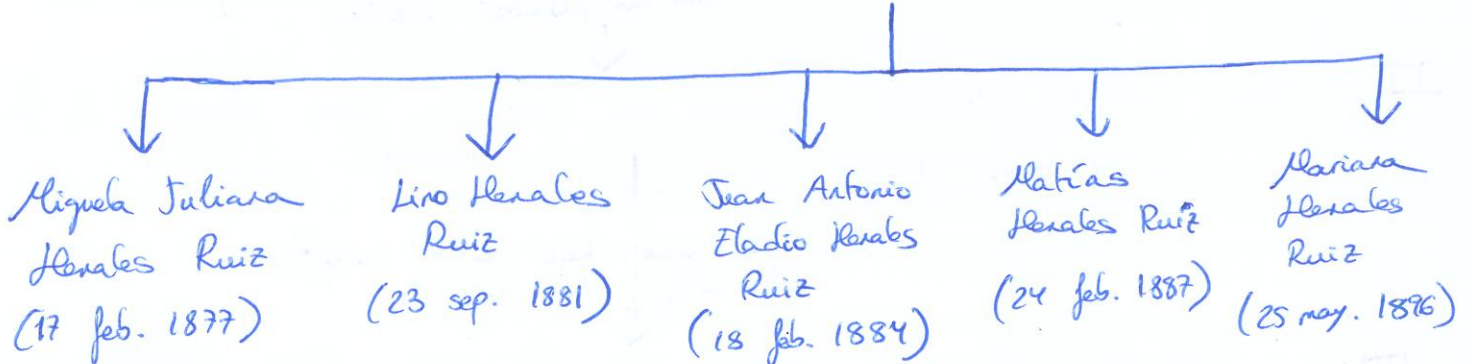 Miguela Juliana
Henales Ruiz
(17 feb. 1877)
Lino Henales
Ruiz
(23 sep. 1881)
Juan Antonio
Eladio Henales
Ruiz
(18 feb. 1884)
Matías
Henales Ruiz
(24 feb. 1887)
Mariana
Henales
Ruiz
(25 may. 1896)